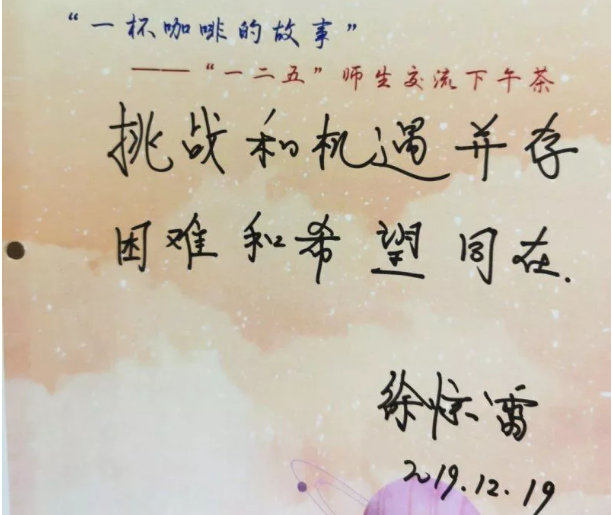 “一杯咖啡的故事”
——“一二五”师生交流下午茶
挑战和机遇并存
困难和希望同在.
徐惊雷
2019.12.19